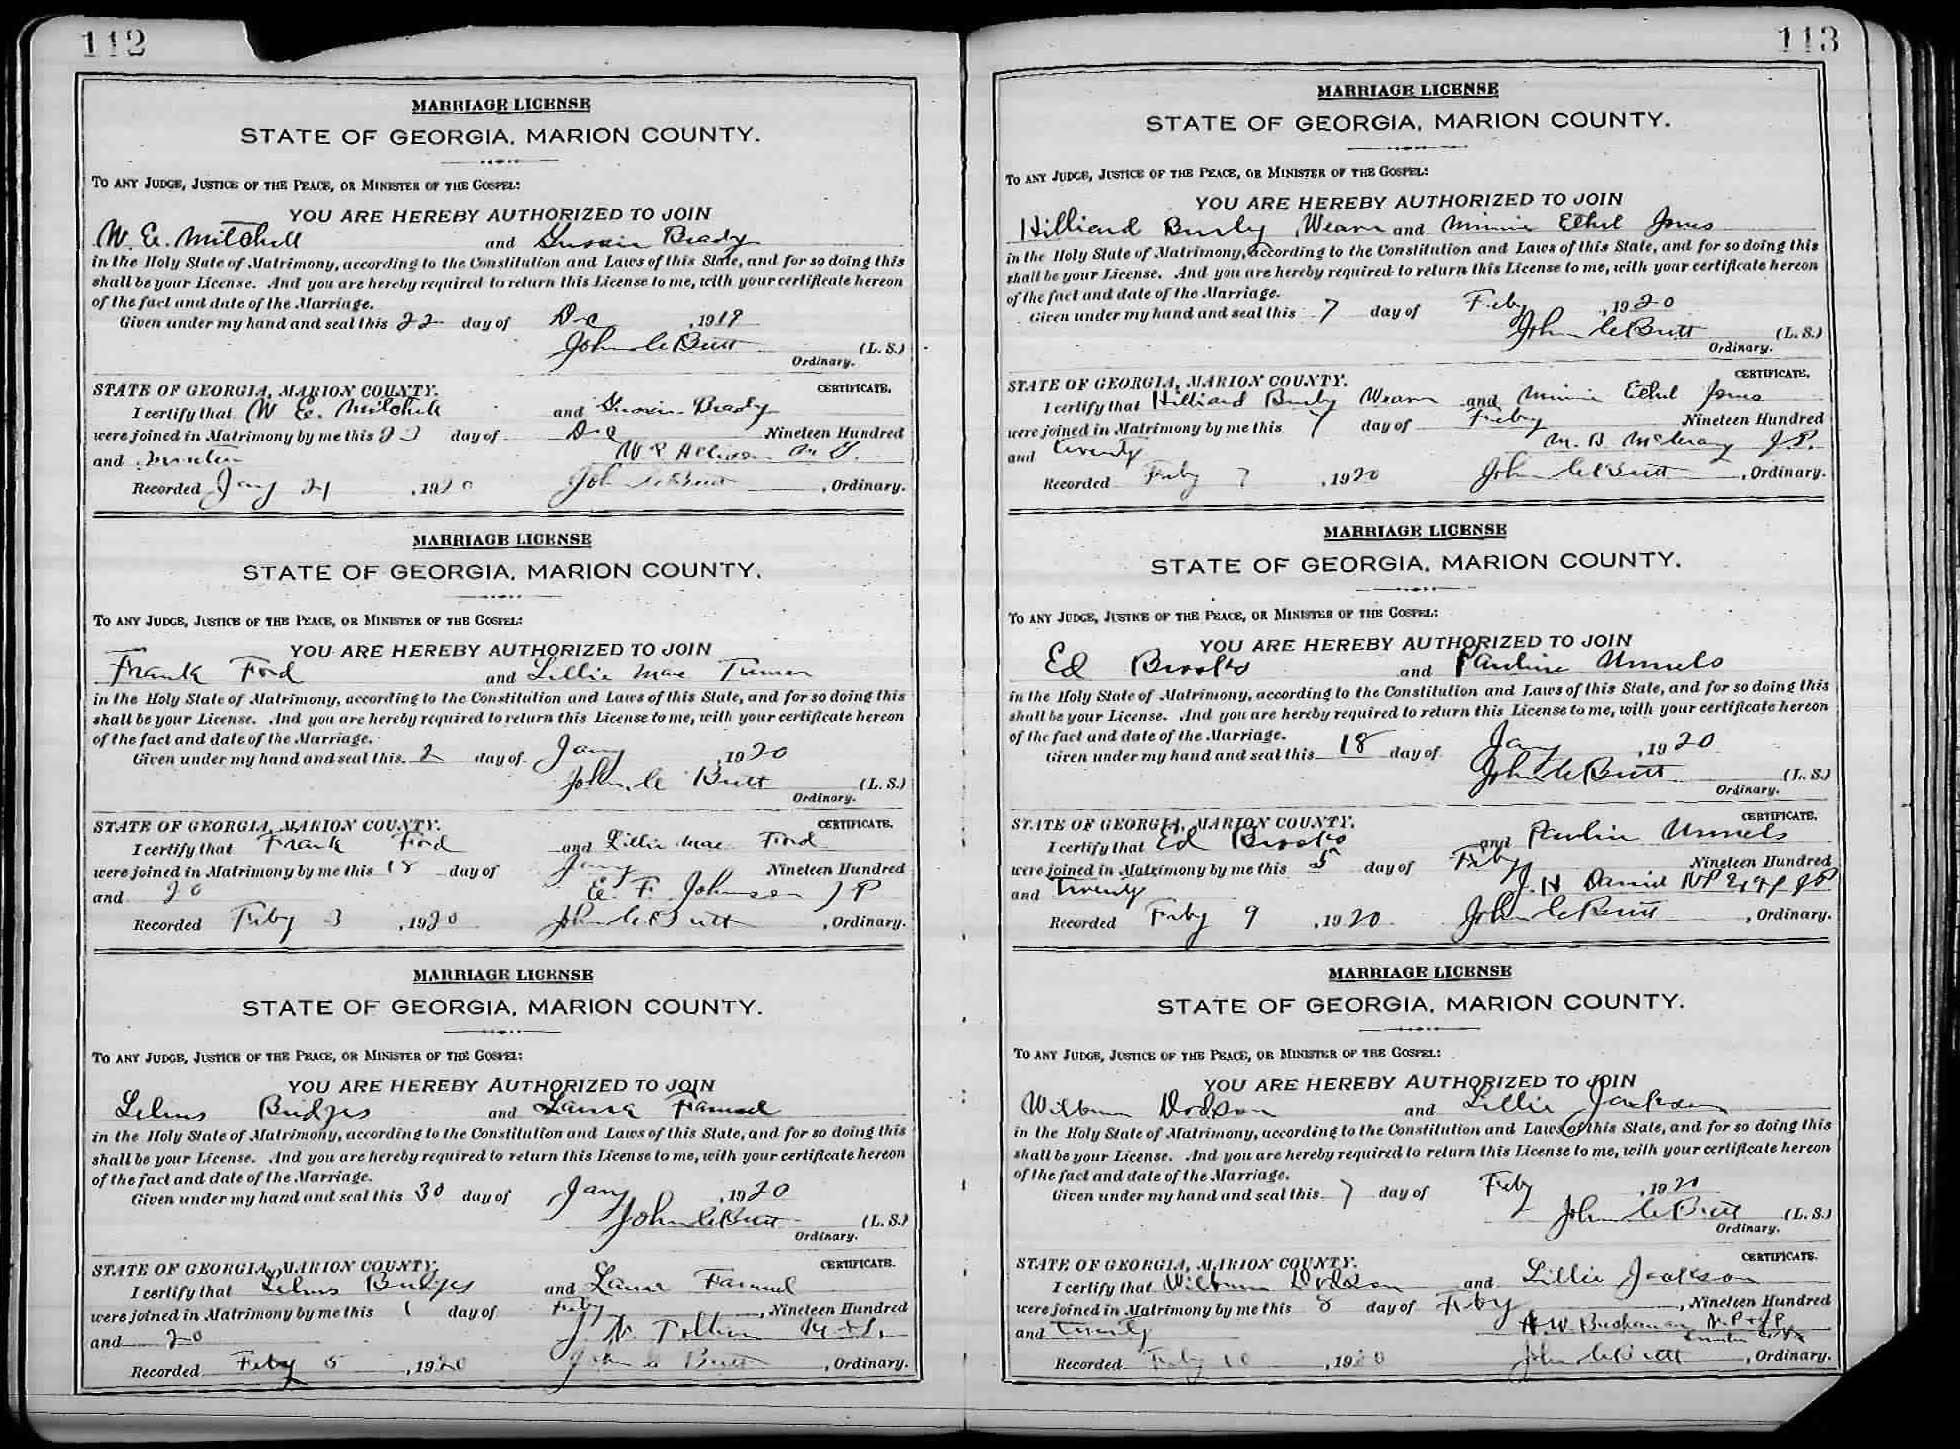 112
MARRIAGE LICENSE
STATE OF GEORGIA, MARION COUNTY.
TO ANY JUDGE, JUSTICE OF THE PEACE, OR MINISTER OF THE GOSPEL:
YOU ARE HEREBY AUTHORIZED TO JOIN
W. E. Mitchell and Gussie Brady
in the Holy State of Matrimony, according to the Constitution and Laws of this State, and for so doing this
shall be your License. And you are hereby required to return this License to me, with your certificate hereon
of the fact and date of the Marriage.
Given under my hand and seal this 22 day of Dec, 1919
John C Butt (L. S.)
Ordinary.
STATE OF GEORGIA, MARION COUNTY. CERTIFICATE.
I certify that W E. Mitchell and Gussie Brady
were joined in Matrimony by me this day of Dec Nineteen Hundred
and
W R M G.
Recorded Jany 21, 1920 John C Butt, Ordinary.
MARRIAGE LICENSE
STATE OF GEORGIA, MARION COUNTY.
TO ANY JUDGE, JUSTICE OF THE PEACE, OR MINISTER OF THE GOSPEL:
YOU ARE HEREBY AUTHORIZED TO JOIN
Frank Ford and Lillie Mae Turner
in the Holy State of Matrimony, according to the Constitution and Laws of this State, and for so doing this
shall be your License. And you are hereby required to return this License to me, with your certificate hereon
of the fact and date of the Marriage.
Given under my hand and seal this 2 day of Jany, 1920
John C Butt (L. S.)
Ordinary.
STATE OF GEORGIA, MARION COUNTY. CERTIFICATE.
I certify that Frank Ford and Lillie Mae Ford
were joined in Matrimony by me this 18 day of Jany Nineteen Hundred
and 20 E. F. Johnson J P
Recorded Feby 3, 1920 John C Butt, Ordinary.
MARRIAGE LICENSE
STATE OF GEORGIA, MARION COUNTY.
TO ANY JUDGE, JUSTICE OF THE PEACE, OR MINISTER OF THE GOSPEL:
YOU ARE HEREBY AUTHORIZED TO JOIN
Bridges and Laura
in the Holy State of Matrimony, according to the Constitution and Laws of this State, and for so doing this
shall be your License. And you are hereby required to return this License to me, with your certificate hereon
of the fact and date of the Marriage.
Given under my hand and seal this 30 day of Jany, 1920
John C Butt (L. S.)
Ordinary.
STATE OF GEORGIA, MARION COUNTY. CERTIFICATE.
I certify that Bridges and Laura
were joined in Matrimony by me this 1 day of Feby, Nineteen Hundred
and 20 J. N.
Recorded Feby 5, 1920 John C Butt, Ordinary.
113
MARRIAGE LICENSE
STATE OF GEORGIA, MARION COUNTY.
TO ANY JUDGE, JUSTICE OF THE PEACE, OR MINISTER OF THE GOSPEL:
YOU ARE HEREBY AUTHORIZED TO JOIN
Hilliard Burly Wearn and Minnie Ethel Jones
in the Holy State of Matrimony, according to the Constitution and Laws of this State, and for so doing this
shall be your License. And you are hereby required to return this License to me, with your certificate hereon
of the fact and date of the Marriage.
Given under my hand and seal this 7 day of Feby, 1920
John C Butt (L. S.)
Ordinary.
STATE OF GEORGIA, MARION COUNTY. CERTIFICATE.
I certify that Hilliard Burly Wearn and Minnie Ethel Jones
were joined in Matrimony by me this 7 day of Feby Nineteen Hundred
and Twenty M. B. J. P.
Recorded Feby 7, 1920 John C Butt, Ordinary.
MARRIAGE LICENSE
STATE OF GEORGIA, MARION COUNTY.
TO ANY JUDGE, JUSTICE OF THE PEACE, OR MINISTER OF THE GOSPEL:
YOU ARE HEREBY AUTHORIZED TO JOIN
Ed Brooks and Pauline
in the Holy State of Matrimony, according to the Constitution and Laws of this State, and for so doing this
shall be your License. And you are hereby required to return this License to me, with your certificate hereon
of the fact and date of the Marriage.
Given under my hand and seal this 18 day of Jany, 1920
John C Butt (L. S.)
Ordinary.
STATE OF GEORGIA, MARION COUNTY. CERTIFICATE.
I certify that Ed Brooks and Pauline
were joined in Matrimony by me this 5 day of Feby Nineteen Hundred
and Twenty J. H Daniel NP J P
Recorded Feby 9, 1920 John C Butt, Ordinary.
MARRIAGE LICENSE
STATE OF GEORGIA, MARION COUNTY.
TO ANY JUDGE, JUSTICE OF THE PEACE, OR MINISTER OF THE GOSPEL:
YOU ARE HEREBY AUTHORIZED TO JOIN
Wilburn Dodson and Lillie Jackson
in the Holy State of Matrimony, according to the Constitution and Laws of this State, and for so doing this
shall be your License. And you are hereby required to return this License to me, with your certificate hereon
of the fact and date of the Marriage.
Given under my hand and seal this 7 day of Feby, 1920
John C Butt (L. S.)
Ordinary.
STATE OF GEORGIA, MARION COUNTY. CERTIFICATE.
I certify that Wilburn Dodson and Lillie Jackson
were joined in Matrimony by me this 8 day of Feby, Nineteen Hundred
and Twenty H. W. Buchanan N. P & J P
Recorded Feby 10, 1920 John C Butt, Ordinary.